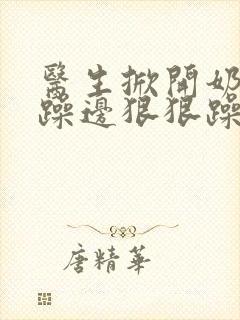 醫生掀開奶
躁邊狠狠躁
唐精華